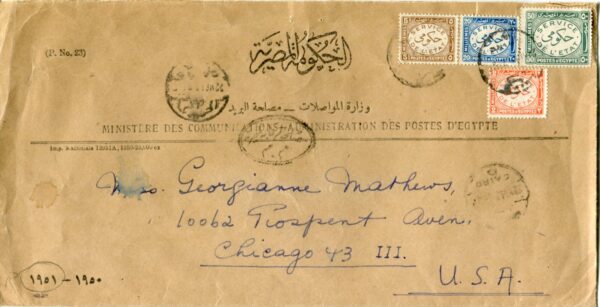 (P. No. 23)
الحكومة المصرية
SERVICE
DE L'ETAT
POSTES D'EGYPTE
حكومى
SERVICE
DE L'ETAT
POSTES D'EGYPTE
50
SERVICE
حكومى
DE L'ETAT
POSTES D'EGYPTE
SERVICE
DE L'ETAT
POSTES D'EGYPTE
وزارة المواصلات – مصلحة البريد
MINISTÈRE DES COMMUNICATIONS–ADMINISTRATION DES POSTES D'EGYPTE
CAIRO
Miss. Georgianne Mathews,
10062 Prospent Aven.
Chicago 43 Ill.
U. S. A.
١٩٥١ – ١٩٥٠